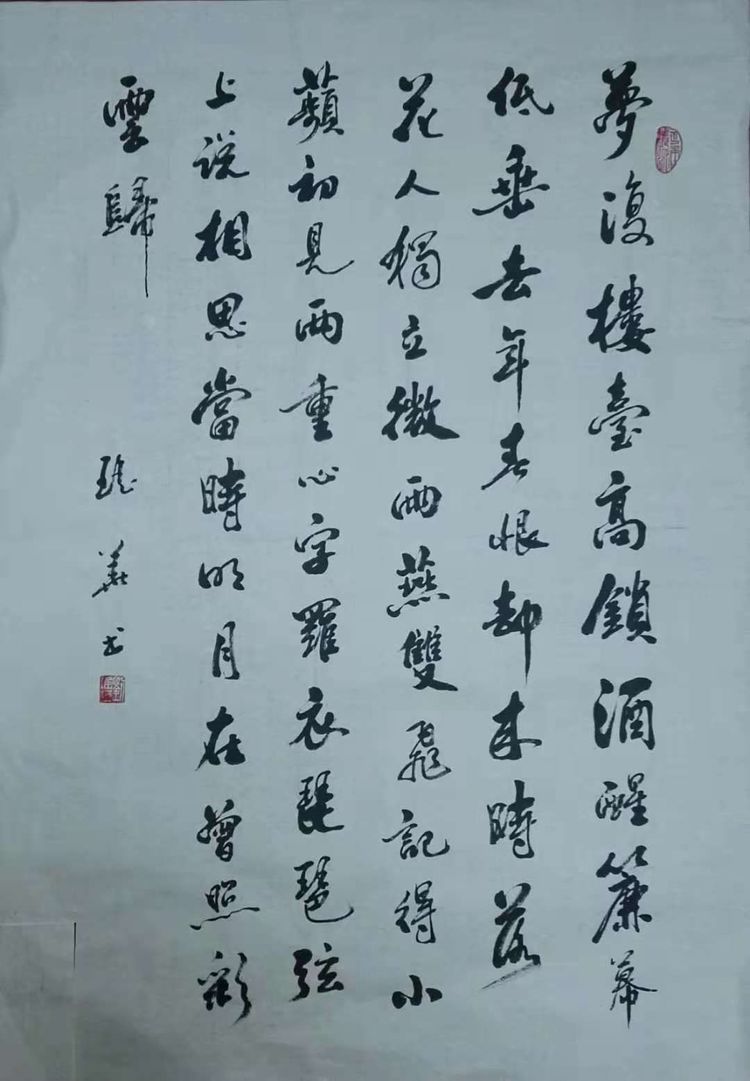 夢後樓臺高鎖酒醒簾幕
低垂去年春恨却来時落
花人獨立微雨燕雙飛記得小
蘋初見两重心字羅衣琵琶弦
上说相思當時明月在曾照彩
雲歸
书